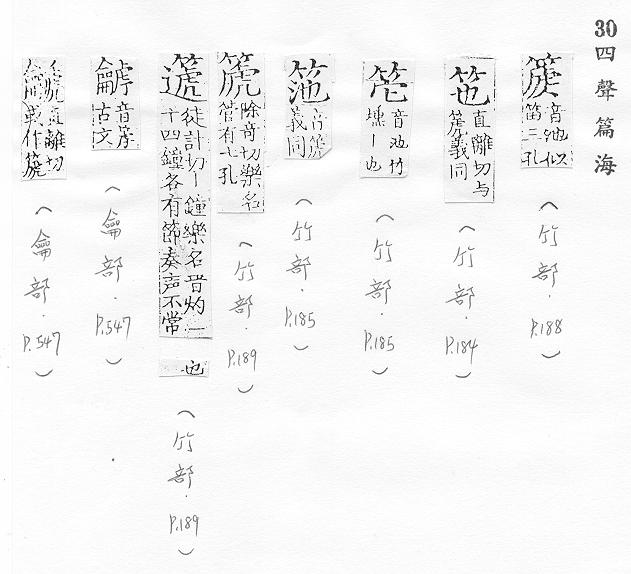 30四聲篇海
音池似笛三孔
(竹部.P.188)
笹 直離切与篪義同
(竹部.P.184)
音池竹壎一也
(竹部.P.185)
箈 音篪義同
(竹部.P.185)
篪 除音切樂名管有七孔
(竹部.P.189)
徒計切一鐘樂名晋灼一十四鐘各有節奏声不常 也
(竹部.P.189)
古文
(龠部.P.547)
直離切或作篪
(龠部.P.547)